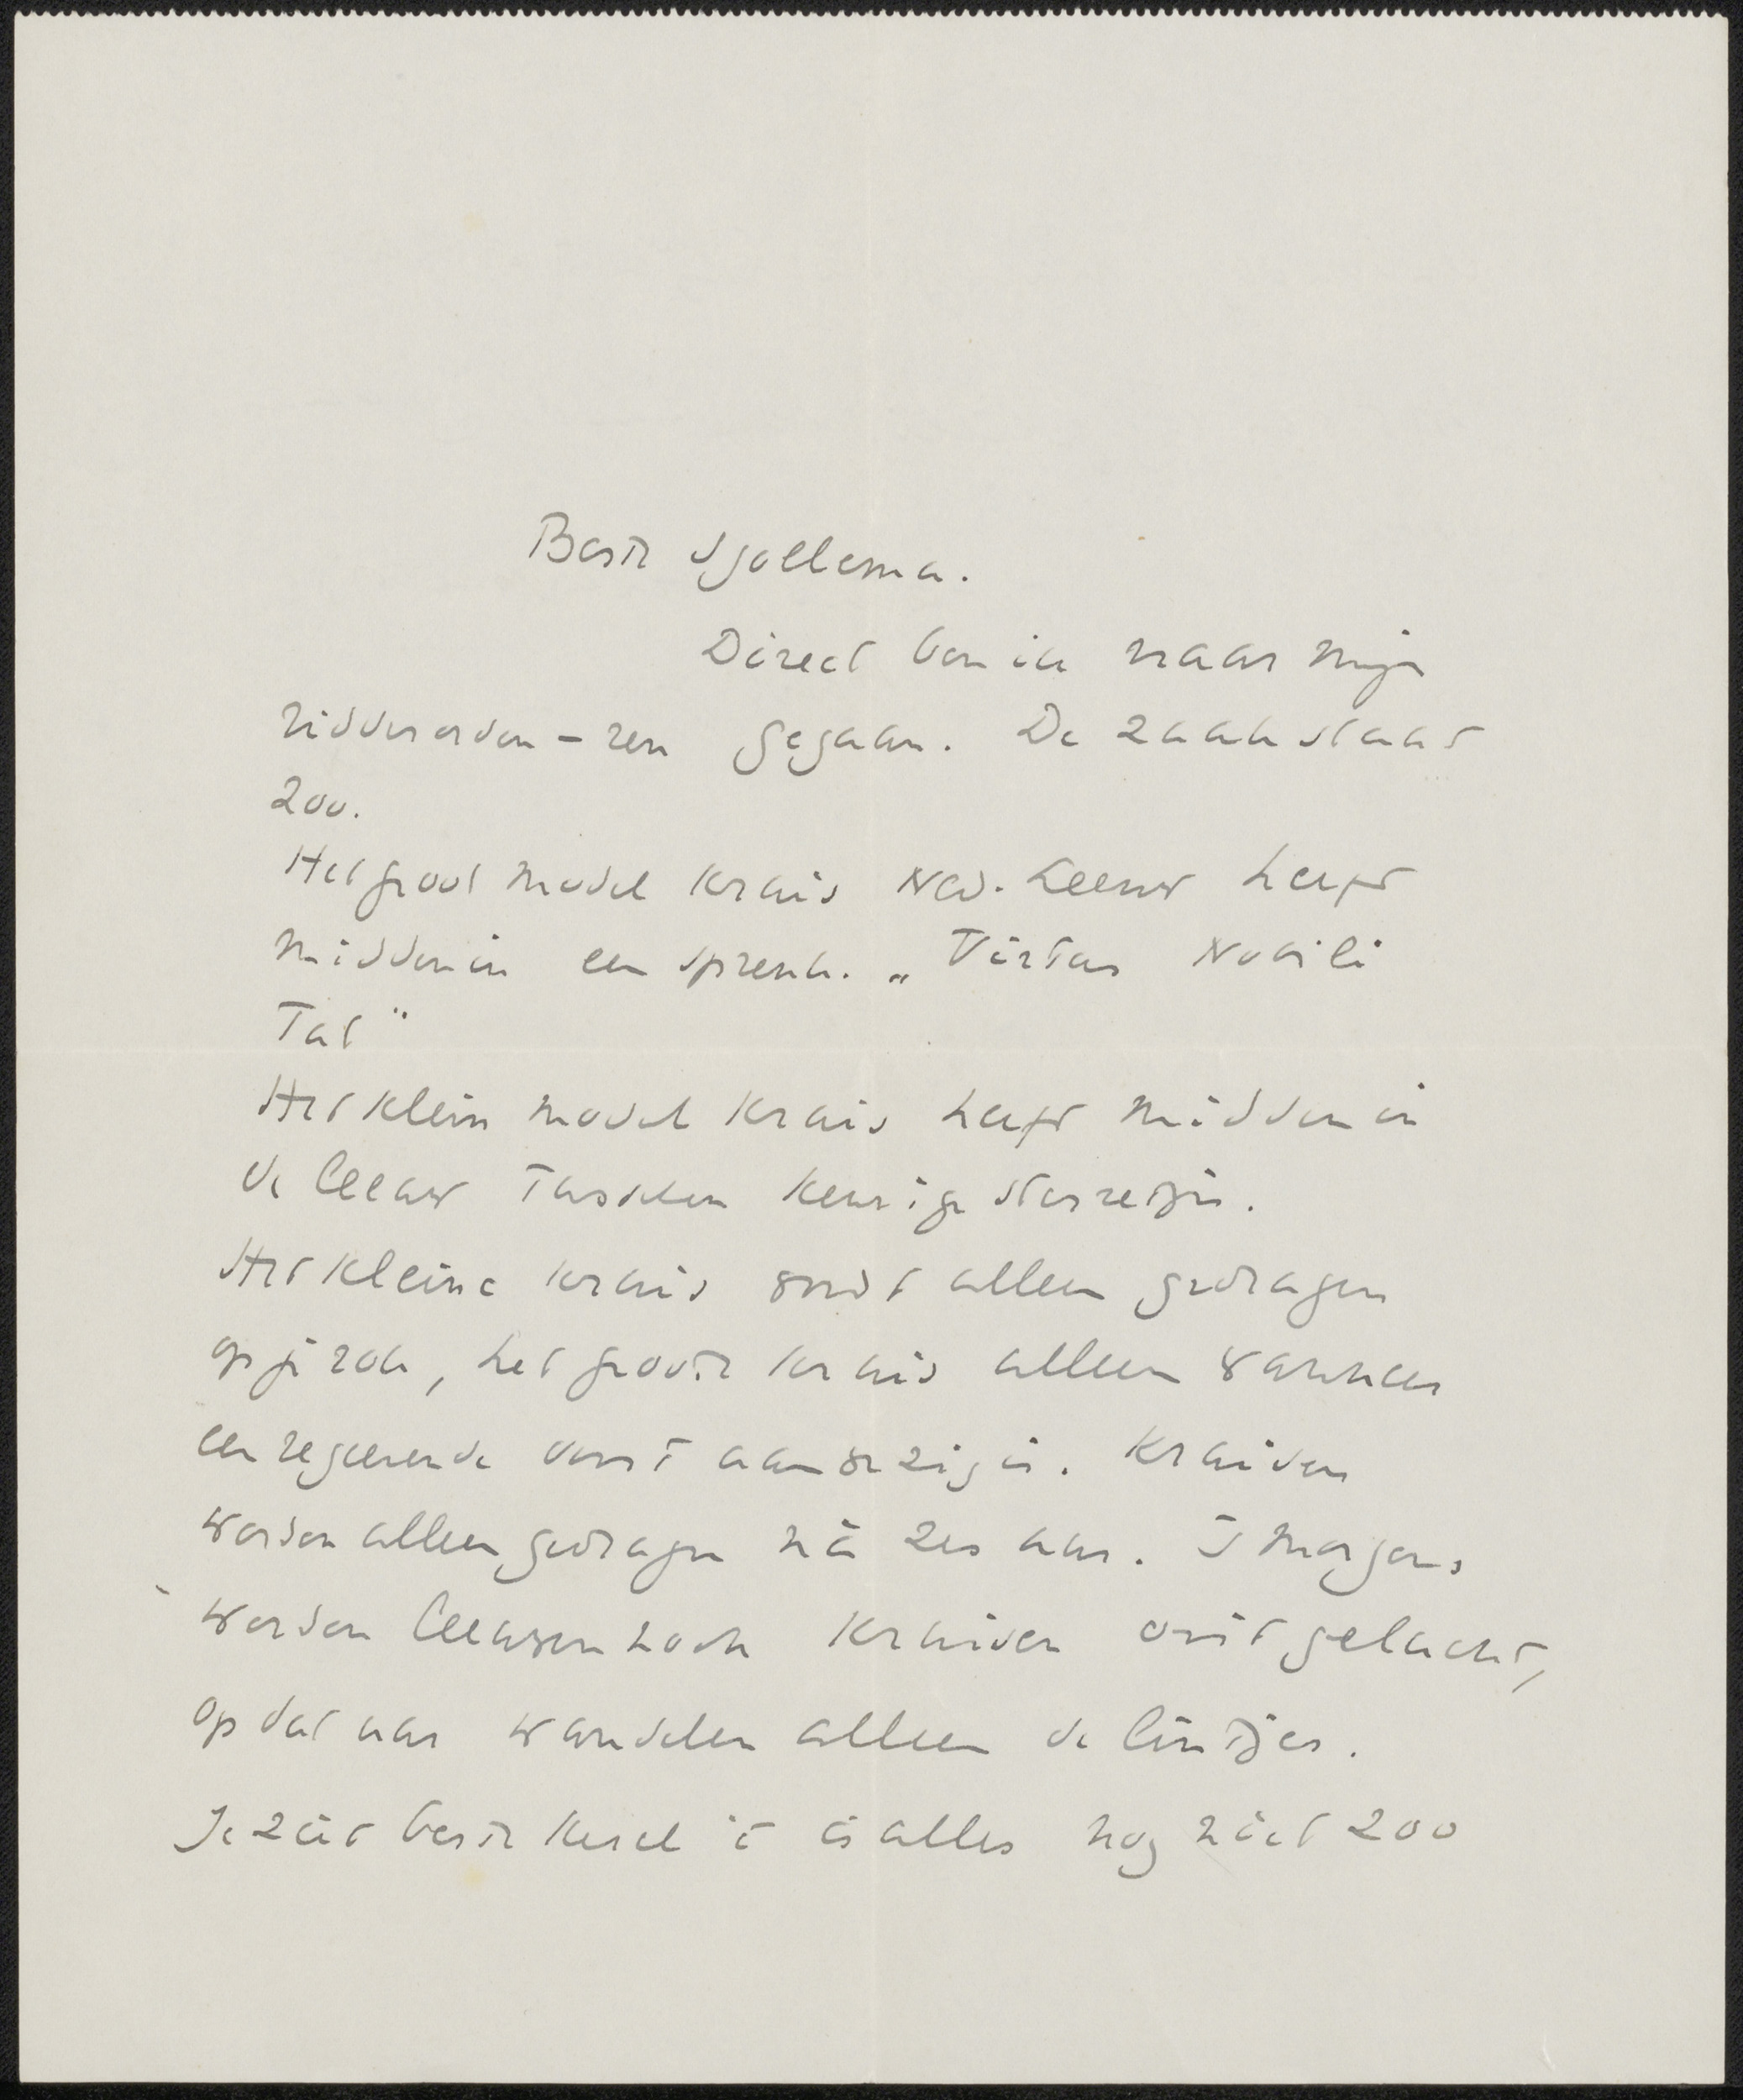 Beste Sjollema.
Direct ben ik naar mijn
ridderorden-ren gegaan. De zaak staat
zoo.
Het groot model kruis Ned. Leeuw heeft
middenin een spreuk. „Virtus Nobili
Tat"
Het klein model kruis heeft midden in
de leeuw tusschen keurige sterretjes.
Het kleine kruis wordt alleen gedragen
op je rok, het groote kruis alleen wanneer
een regeerende vorst aanwezig is. Kruisen
worden alleen gedragen nà zes uur. 's Morgens
worden leeuwen noch kruisen ooit gelucht,
op dat uur wandelen alleen de lintjes.
Je ziet beste kerel 't is alles nog niet zoo